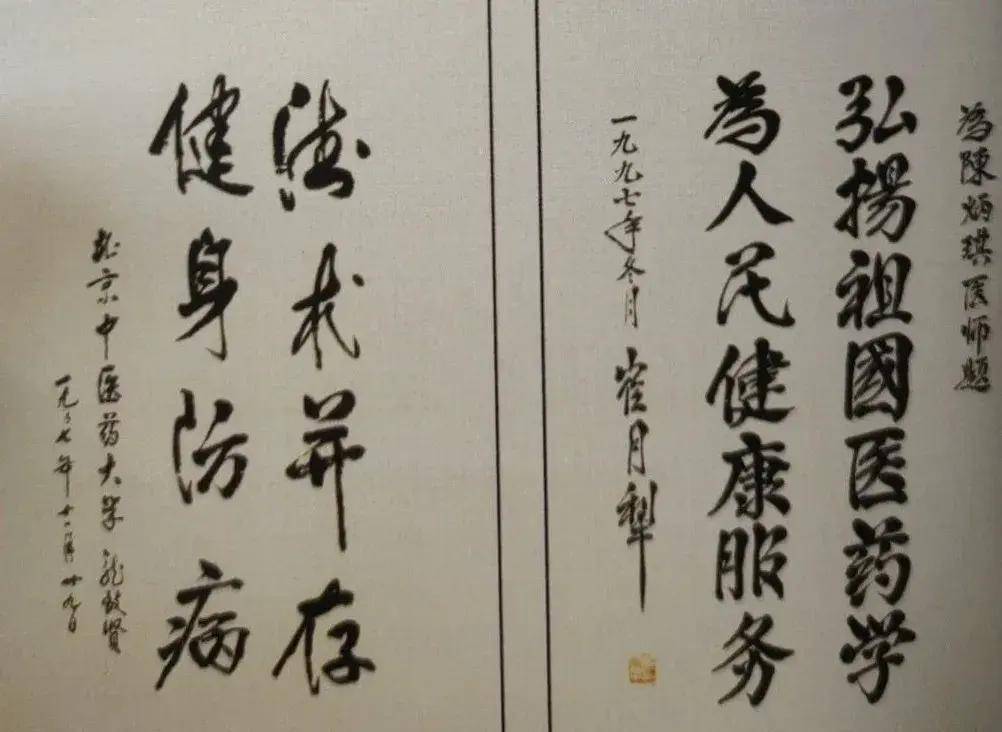 為陳炳琪医师题
弘揚祖國医药学
為人民健康服务
一九九七年冬月 崔月犁
德术并存
健身防病
北京中医药大学 龙致贤
一九九七年十二月廿九日